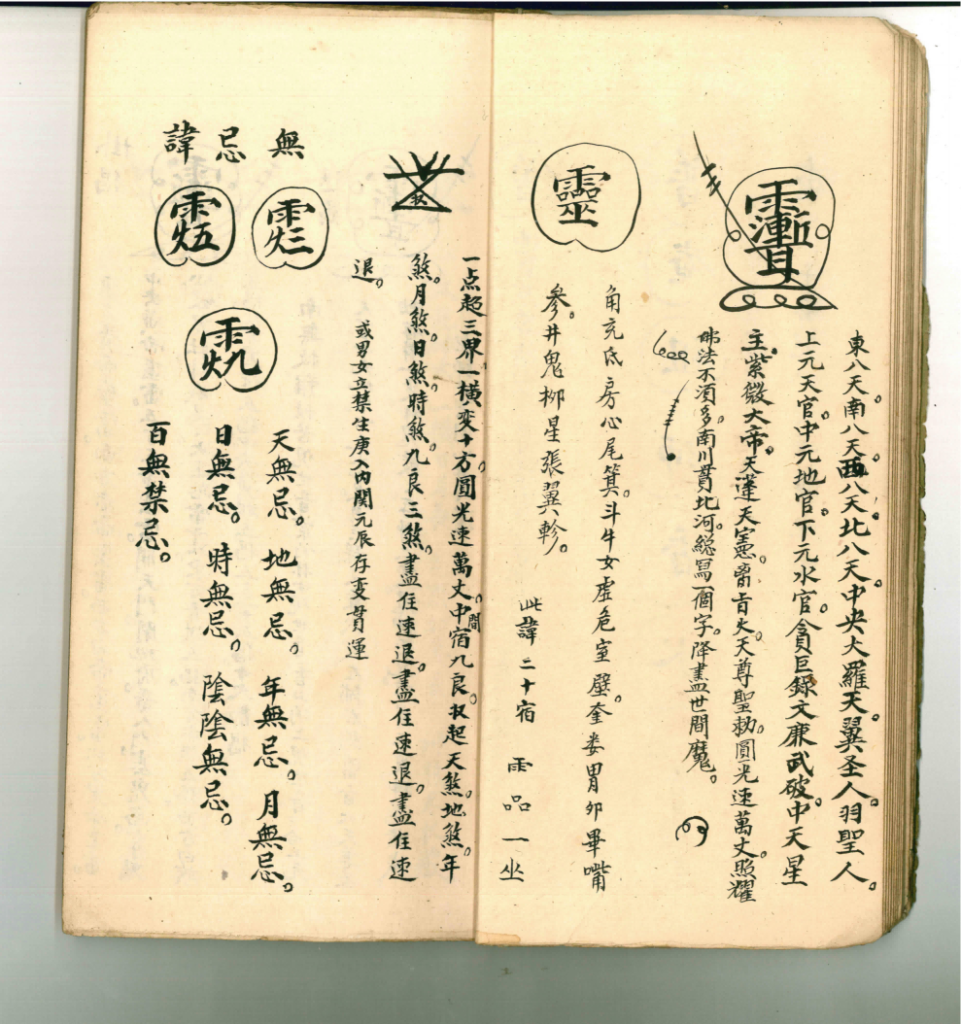 東八天南八天西八天北八天中央大羅天翼圣人。羽聖人。
上元天官。中元地官。下元水官。貪巨錄文廉武破。中天星
主。紫微大帝。天蓬天憲。天尊聖勑。圓光速萬丈。照耀
佛法不須多。南川貫北河。総寫一個字。降盡世間魔。
靈
角亢氐房心尾箕。斗牛女虚危室壁。奎娄胃卯畢嘴
參。井鬼柳星張翼軫。
此諱二十宿 雨品一坐
一点起三界一橫变十方。圓光速萬丈。中間宿九良。扠起天煞。地煞。年
煞。月煞。日煞。時煞。九良三煞。盡住速退。盡住速退。盡住速
退。
或男女立禁生庚入内関元辰存变貫運
無忌諱
天無忌。 地無忌。 年無忌。月無忌。
日無忌。 時無忌。 陰陰無忌。
百無禁忌。